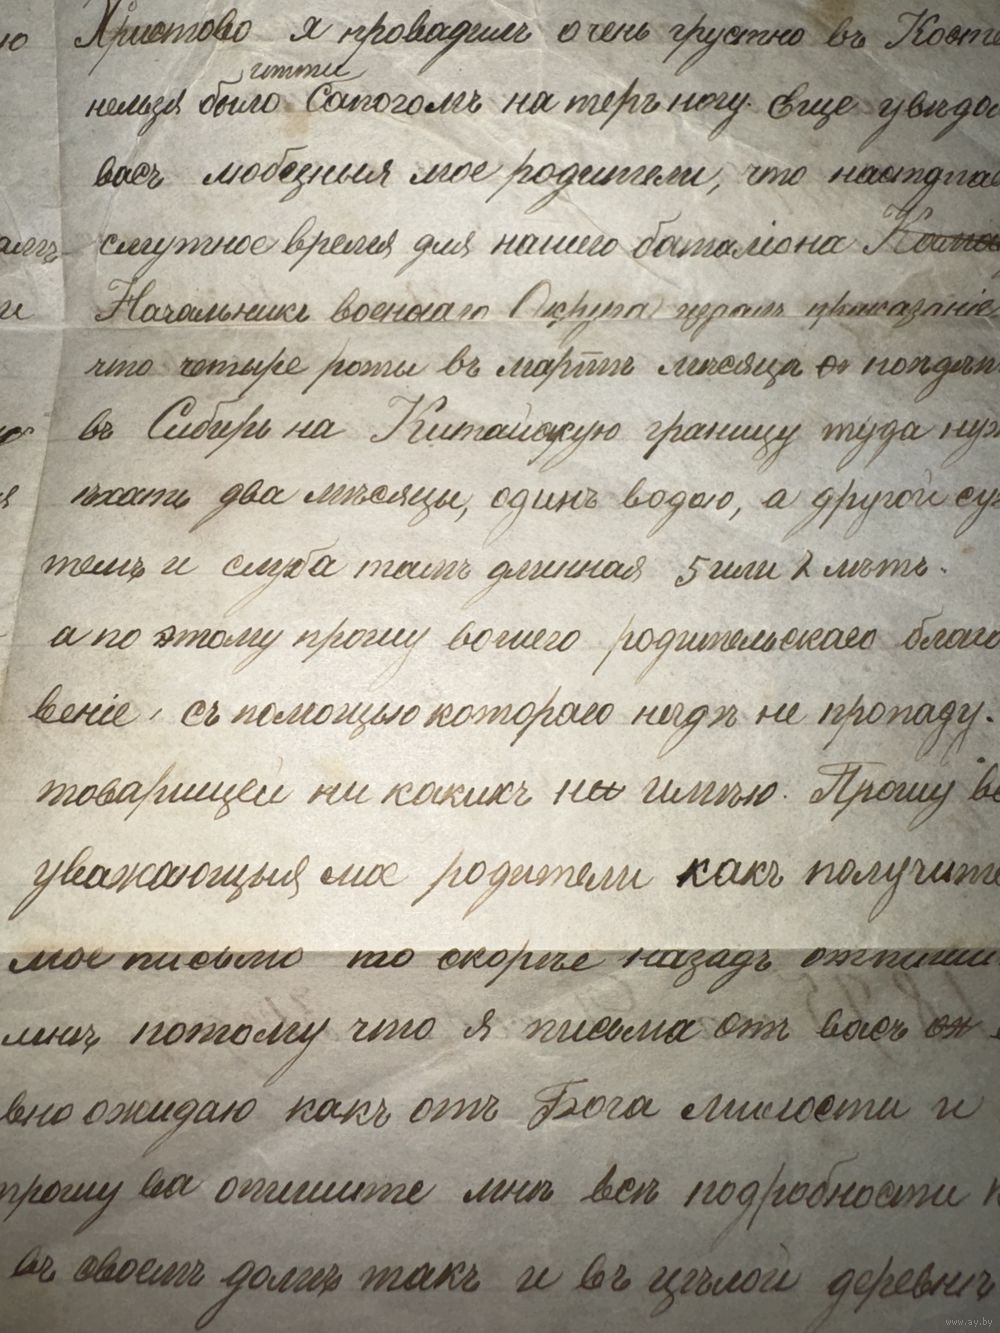 ю Христово я провадилъ очень грустно въ Косте
итти
нельзя было Сапогомъ натеръ ногу. Еще увѣдо
васъ любезныя мое родители, что наступае
смутное время для нашего баталіона
и Начальникъ военнаго Округа приказаніе
что четыре роты въ мартѣ мѣсяца поѣдут
въ Сибирь на Китайскую границу туда нуж
я ѣхать два мѣсяцы, одинъ водою, а другой су
темъ и служба тамъ длинная 5 или лѣтъ.
а по этому прошу вошего родительскаго благо
веніе, съ помощью котораго нигдѣ не пропаду.
товарищей ни какихъ не имѣю. Прошу ва
уважающыя мое родители какъ получите
мое письмо то скорѣе назадъ отпиши
мнѣ потому что я письма отъ васъ
вно ожидаю какъ отъ Бога милости и
прошу ва опишите мнѣ всѣ подробности к
въ своемъ домѣ такъ и въ цѣлой деревнѣ
www.ay.by